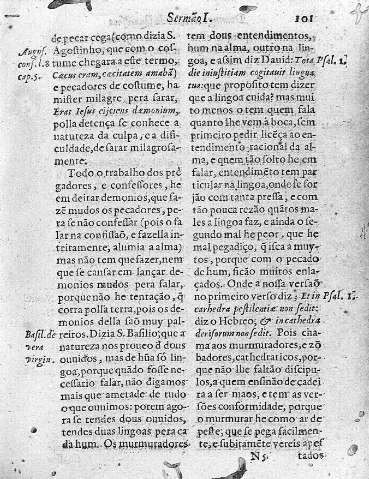 Sermão I.
101
de pecar cega (como dizia S.
Agostinho, que com o cos-
tume chegara a esse termo,
Cæcus eram, cæcitatem amabã)
e pecadores de costume, ha-
mister milagre pera sarar,
Erat Iesus eijciens dæmonium,
polla detença se conhece a
natureza da culpa, e a dif-
iculdade, de sarar milagrosa-
mente.
Todo o trabalho dos prè
gadores, e confessores, he
em deitar demonios, que fa-
zẽ mudos os pecadores, pe-
ra se não confessar (pois o fa
lar na confissão, e fazella in-
teiramente, alumia a alma)
mas não tem que fazer, nem
que se cansar em lançar de-
monios mudos pera falar,
porque não he tentação, q̃
corra polla terra, pois os de-
monios della são muy pal-
reiros. Dizia S. Basilio; que a
natureza nos proueo d dous
ouuidos, mas de hũa só lin-
goa, porque quãdo fosse ne-
cessario falar, não digamos
mais que ametade de tudo
o que ouuimos: porem ago-
ra se tendes dous ouuidos,
tendes duas lingoas pera ca
da hum. Os murmuradores
August.
conf. l. 8
cap. 5.
Basil. de
vera
virgin.
tem dous entendimentos,
hum na alma, outro na lin-
goa, e assim diz Dauid: Tota
die iniustitiam cogitauit lingua
tua: que proposito tem dizer
que a lingoa cuida? mas mui
to menos o tem quem fala
quanto lhe vem à boca, sem
primeiro pedir licẽça ao en-
tendimento racional da al-
ma, e quem tão solto he em
falar, entendimẽto tem par
ticular na lingoa, onde se for
jão com tanta pressa, e com
tão pouca rezão quãtos ma-
les a lingoa faz, e ainda o se-
gundo mal he peor, que he
mal pegadiço, q̃ isca a muy-
tos, porque com o pecado
de hum, ficão muitos enla-
çados. Onde a nossa versaõ
no primeiro verso diz; Et in
cathedra pestilentiæ non sedit:
diz o Hebreo; & in cathedra
derisorum non sedit. Pois cha-
ma aos murmuradores, e zõ
badores, cathedraticos, por-
que não lhe faltão discipu-
los, a quem ensinão de cadei
ra a ser maos, e tem as ver-
sões conformidade, porque
o murmurar he como ar de
peste; que se pega facilmen-
te, e subitamẽte vereis apes
Psal. 1.
Psal. 1.
N 5
tados